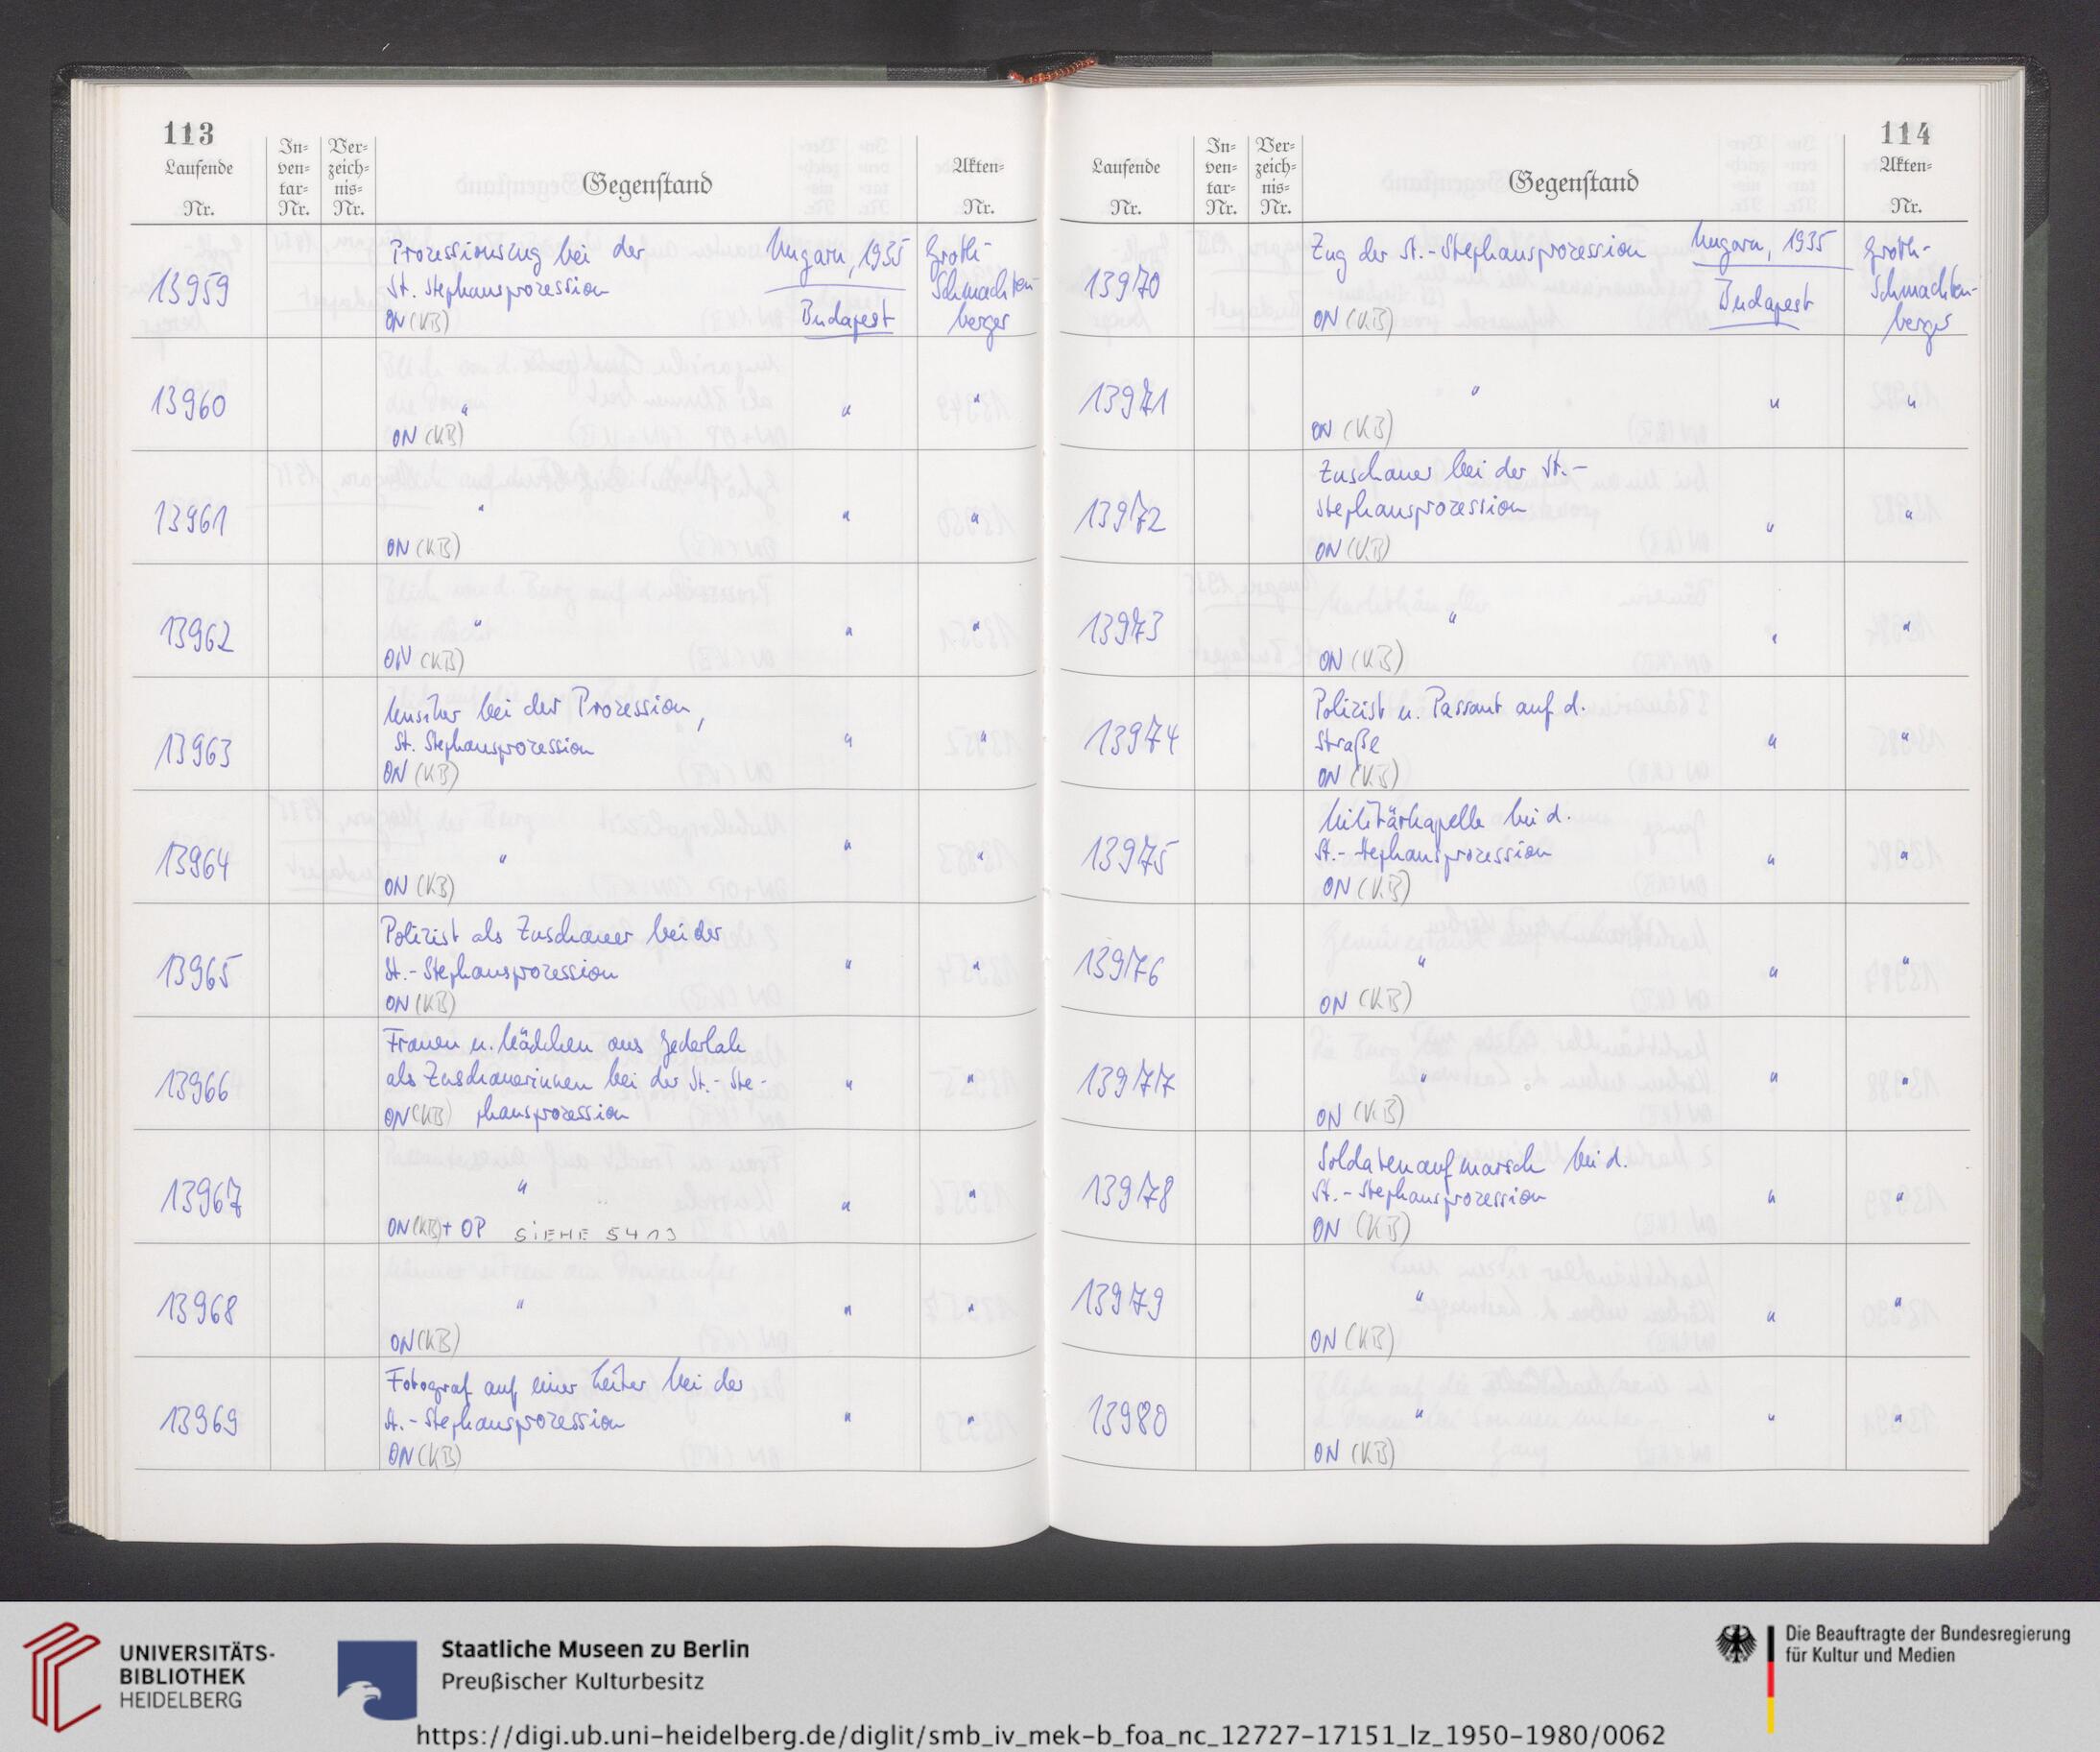 113
Laufende
Nr.
In-
ven-
tar-
Nr.
Ver-
zeich-
nis-
Nr.
Gegenstand
Akten-
Nr.
13959 Prozessionszug bei der Ungarn, 1935 Groth-
St. Stephansprozession Schmachten-
ON (KB) Budapest berger
13960 " " "
ON (KB)
13961 " " "
ON (KB)
13962 " " "
ON (KB)
Musiker bei der Prozession,
13963 St. Stephansprozession " "
ON (KB)
13964 " " "
ON (KB)
Polizist als Zuschauer bei der
13965 St.-Stephansprozession " "
ON (KB)
Frauen u. Mädchen aus Gederlak
13966 als Zuschauerinnen bei der St.-Ste- " "
ON (KB) phansprozession
13967 " " "
ON (KB) + OP SIEHE 5413
13968 " " "
ON (KB)
Fotograf auf einer Leiter bei der
13969 St.-Stephansprozession " "
ON (KB)
114
Laufende
Nr.
In-
ven-
tar-
Nr.
Ver-
zeich-
nis-
Nr.
Gegenstand
Akten-
Nr.
Zug der St.-Stephansprozession Ungarn, 1935 Groth-
13970 Budapest Schmachten-
ON (KB) berger
13971 " " "
ON (KB)
Zuschauer bei der St.-
13972 Stephansprozession " "
ON (KB)
13973 " " "
ON (KB)
Polizist u. Passant auf d.
13974 Straße " "
ON (KB)
Militärkapelle bei d.
13975 St.-Stephansprozession " "
ON (KB)
13976 " " "
ON (KB)
13977 " " "
ON (KB)
Soldatenaufmarsch bei d.
13978 St.-Stephansprozession " "
ON (KB)
13979 " " "
ON (KB)
13980 " " "
ON (KB)
UNIVERSITÄTS-
BIBLIOTHEK
HEIDELBERG
Staatliche Museen zu Berlin
Preußischer Kulturbesitz
Die Beauftragte der Bundesregierung
für Kultur und Medien
https://digi.ub.uni-heidelberg.de/diglit/smb_iv_mek-b_foa_nc_12727-17151_lz_1950-1980/0062